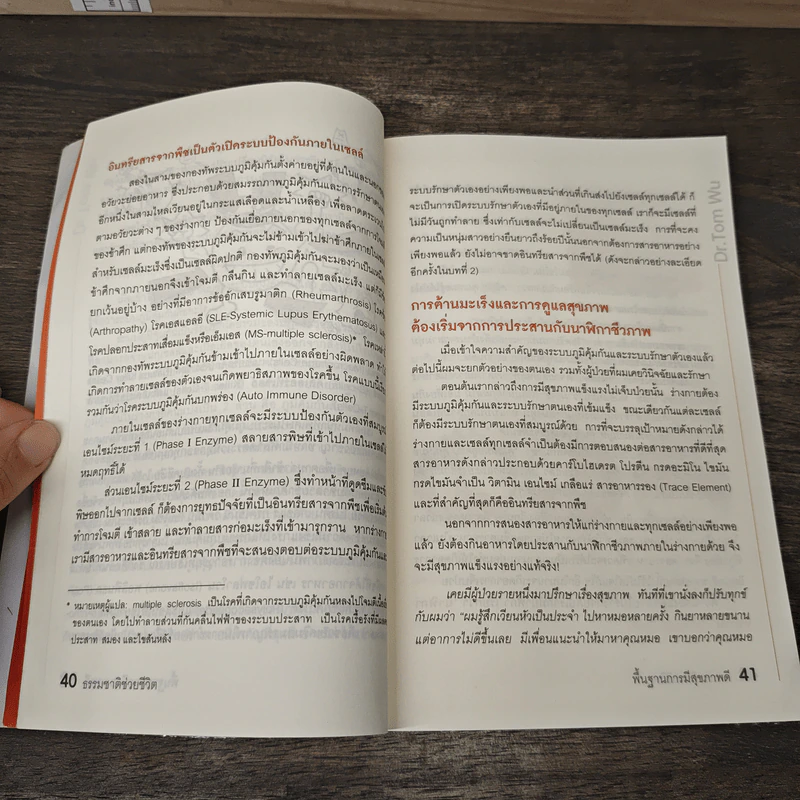 อินทรียสารจากพืชเป็นตัวเปิดระบบป้องกันภายในเซลล์
สองในสามของกองทัพระบบภูมิคุ้มกันตั้งค่ายอยู่ที่ด้านในและนอกของ
อวัยวะย่อยอาหาร ซึ่งประกอบด้วยสมรรถภาพภูมิคุ้มกันและการรักษาตนเอง
อีกหนึ่งในสามไหลเวียนอยู่ในกระแสเลือดและน้ำเหลือง เพื่อลาดตระเวน
ตามอวัยวะต่าง ๆ ของร่างกาย ป้องกันเยื่อภายนอกของทุกเซลล์จากการโจมตี
ของข้าศึก แต่กองทัพของระบบภูมิคุ้มกันจะไม่ข้ามเข้าไปฆ่าข้าศึกภายในเซลล์
สำหรับเซลล์มะเร็งซึ่งเป็นเซลล์ผิดปกติ กองทัพภูมิคุ้มกันจะมองว่าเป็นเสมือน
ข้าศึกจากภายนอกจึงเข้าโจมตี กลืนกิน และทำลายเซลล์มะเร็ง แต่ก็มี
ยกเว้นอยู่บ้าง อย่างที่มีอาการข้ออักเสบรูมาติก (Rheumarthrosis) โรค
(Arthropathy) โรคเอสแอลอี (SLE-Systemic Lupus Erythematosus) และ
โรคปลอกประสาทเสื่อมแข็งหรือเอ็มเอส (MS-multiple sclerosis)* โรคเหล่านี้
เกิดจากกองทัพระบบภูมิคุ้มกันข้ามเข้าไปภายในเซลล์อย่างผิดพลาด ทำ
เกิดการทำลายเซลล์ของตัวเองจนเกิดพยาธิสภาพของโรคขึ้น โรคแบบนี้
รวมกันว่าโรคระบบภูมิคุ้มกันบกพร่อง (Auto Immune Disorder)
ภายในเซลล์ของร่างกายทุกเซลล์จะมีระบบป้องกันตัวเองที่สมบูรณ์
เอนไซม์ระยะที่ 1 (Phase I Enzyme) สลายสารพิษที่เข้าไปภายในเซลล์
หมดฤทธิ์ได้
ส่วนเอนไซม์ระยะที่ 2 (Phase II Enzyme) ซึ่งทำหน้าที่ดูดซึมและ
พิษออกไปจากเซลล์ ก็ต้องการยุทธปัจจัยที่เป็นอินทรียสารจากพืชเพื่อเริ่ม
ทำการโจมตี เข้าสลาย และทำลายสารก่อมะเร็งที่เข้ามารุกราน หากร่างกาย
เรามีสารอาหารและอินทรียสารจากพืชที่จะสนองตอบต่อระบบภูมิคุ้มกันและ
* หมายเหตุผู้แปล: multiple sclerosis เป็นโรคที่เกิดจากระบบภูมิคุ้มกันหลงไปโจมตีเนื้อเยื่อ
ของตนเอง โดยไปทำลายส่วนที่กันคลื่นไฟฟ้าของระบบประสาท เป็นโรคเรื้อรังที่มี
ประสาท สมอง และไขสันหลัง
40 ธรรมชาติช่วยชีวิต
ระบบรักษาตัวเองอย่างเพียงพอและนำส่วนที่เกินส่งไปยังเซลล์ทุกเซลล์ได้ ก็
จะเป็นการเปิดระบบรักษาตัวเองที่มีอยู่ภายในของทุกเซลล์ เราก็จะมีเซลล์ที่
ไม่มีวันถูกทำลาย ซึ่งเท่ากับเซลล์จะไม่เปลี่ยนเป็นเซลล์มะเร็ง การที่จะคง
ความเป็นหนุ่มสาวอย่างยืนยาวถึงร้อยปีนั้นนอกจากต้องการสารอาหารอย่าง
เพียงพอแล้ว ยังไม่อาจขาดอินทรียสารจากพืชได้ (ดังจะกล่าวอย่างละเอียด
อีกครั้งในบทที่ 2)
Dr.Tom Wu
การต้านมะเร็งและการดูแลสุขภาพ
ต้องเริ่มจากการประสานกับนาฬิกาชีวภาพ
เมื่อเข้าใจความสำคัญของระบบภูมิคุ้มกันและระบบรักษาตัวเองแล้ว
ต่อไปนี้ผมจะยกตัวอย่างของตนเอง รวมทั้งผู้ป่วยที่ผมเคยวินิจฉัยและรักษา
ตอนต้นเรากล่าวถึงการมีสุขภาพแข็งแรงไม่เจ็บป่วยนั้น ร่างกายต้อง
มีระบบภูมิคุ้มกันและระบบรักษาตนเองที่เข้มแข็ง ขณะเดียวกันแต่ละเซลล์
ก็ต้องมีระบบรักษาตนเองที่สมบูรณ์ด้วย การที่จะบรรลุเป้าหมายดังกล่าวได้
ร่างกายและเซลล์ทุกเซลล์จำเป็นต้องมีการตอบสนองต่อสารอาหารที่ดีที่สุด
สารอาหารดังกล่าวประกอบด้วยคาร์โบไฮเดรต โปรตีน กรดอะมิโน ไขมัน
กรดไขมันจำเป็น วิตามิน เอนไซม์ เกลือแร่ สารอาหารรอง (Trace Element)
และที่สำคัญที่สุดก็คืออินทรียสารจากพืช
นอกจากการสนองสารอาหารให้แก่ร่างกายและทุกเซลล์อย่างเพียงพอ
แล้ว ยังต้องกินอาหารโดยประสานกับนาฬิกาชีวภาพภายในร่างกายด้วย จึง
จะมีสุขภาพแข็งแรงอย่างแท้จริง!
เคยมีผู้ป่วยรายหนึ่งมาปรึกษาเรื่องสุขภาพ ทันทีที่เขานั่งลงก็ปรับทุกข์
กับผมว่า “ผมรู้สึกเวียนหัวเป็นประจำ ไปหาหมอหลายครั้ง กินยาหลายขนาน
แต่อาการไม่ดีขึ้นเลย มีเพื่อนแนะนำให้มาหาคุณหมอ เขาบอกว่าคุณหมอ
พื้นฐานการมีสุขภาพดี 41